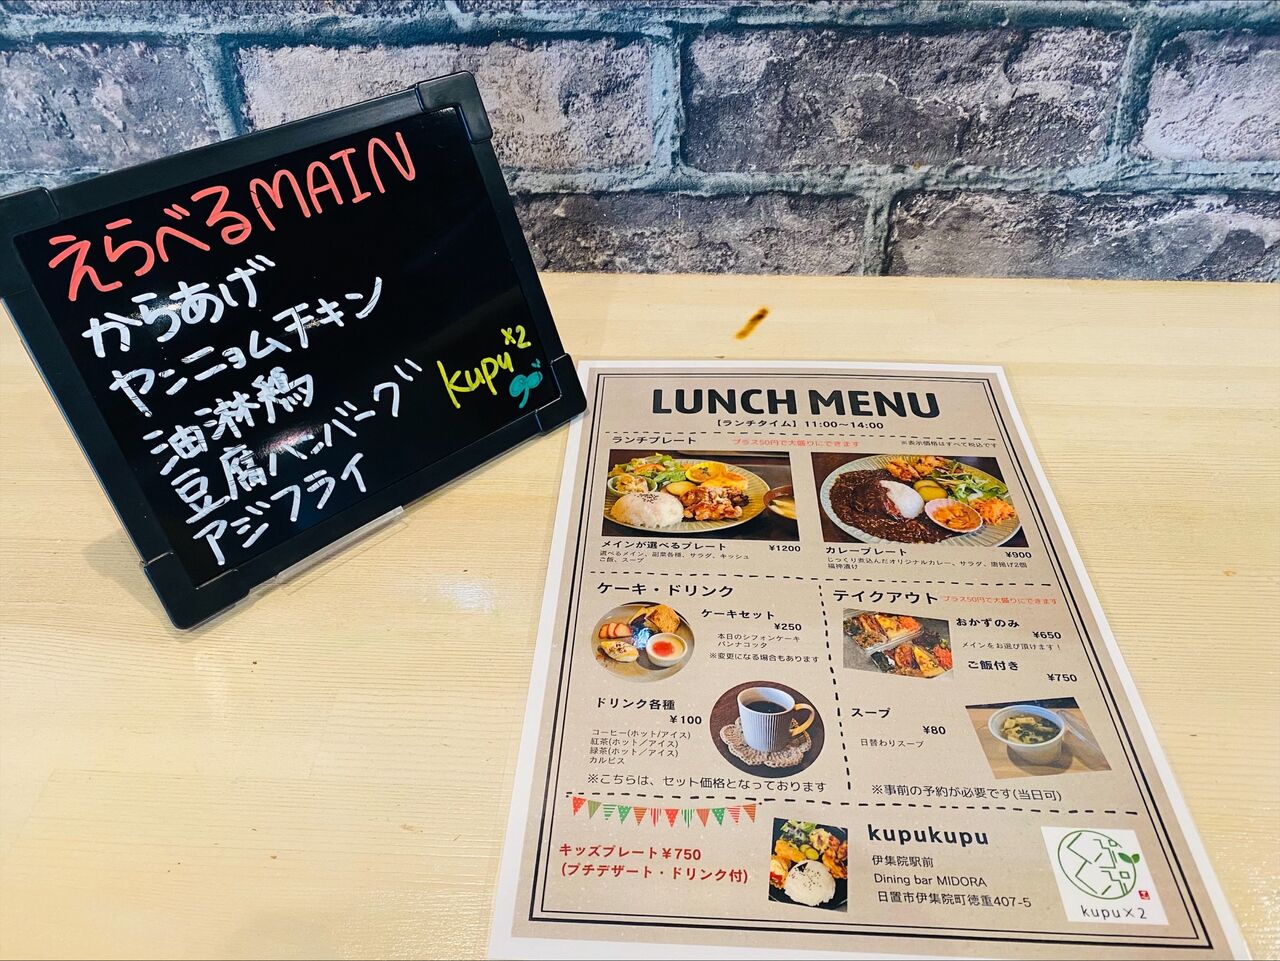 えらべるMAIN
からあげ
ヤンニョムチキン
油淋鶏
豆腐ハンバーグ
アジフライ
kupu×2
LUNCH MENU
【ランチタイム】11:00〜14:00
ランチプレート
プラス50円で大盛りにできます
※表示価格はすべて税込です
メインが選べるプレート ¥1200
選べるメイン、副菜各種、サラダ、キッシュ
ご飯、スープ
カレープレート ¥900
じっくり煮込んだオリジナルカレー、サラダ、唐揚げ2個
福神漬け
ケーキ・ドリンク
ケーキセット
¥250
本日のシフォンケーキ
パンナコッタ
※変更になる場合もあります
ドリンク各種
¥100
コーヒー(ホット/アイス)
紅茶(ホット/アイス)
緑茶(ホット/アイス)
カルピス
※こちらは、セット価格となっております
テイクアウト
プラス50円で大盛りにできます
おかずのみ
¥650
メインをお選び頂けます!
ご飯付き
¥750
スープ
¥80
日替わりスープ
※事前の予約が必要です(当日可)
キッズプレート¥750
(プチデザート・ドリンク付)
kupukupu
伊集院駅前
Dining bar MIDORA
日置市伊集院町徳重407-5
くぷくぷ
kupu×2